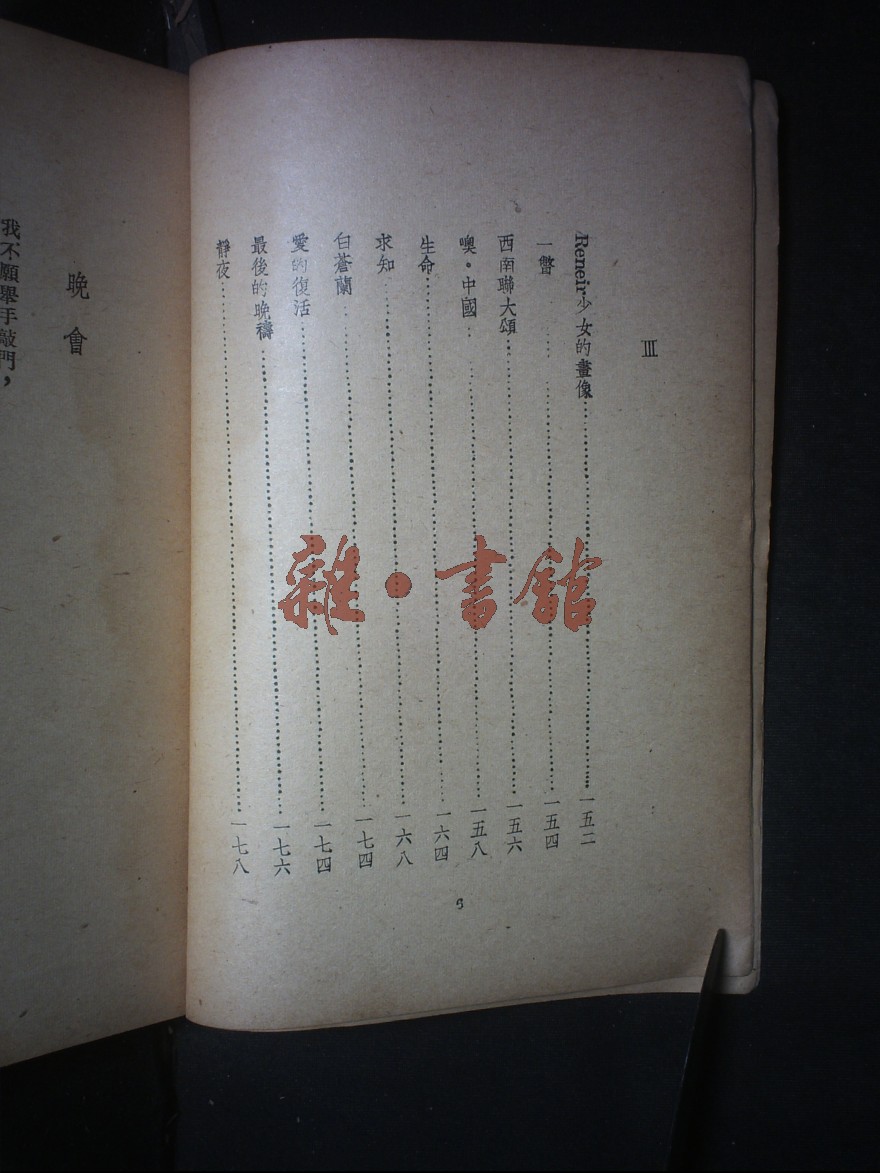 III
Reneir少女的畫像……一五二
一瞥……一五四
西南聯大頌……一五六
噢·中國……一五八
生命……一六四
求知……一六八
白蒼蘭……一七四
愛的復活……一七四
最後的晚禱……一七六
靜夜……一七八
晚會
我不願舉手敲門，
雜·書館